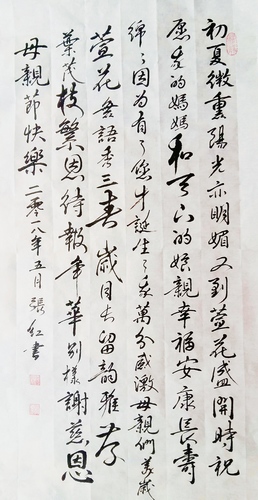 初夏微熏陽光亦明媚又到萱花盛開時祝
愿我的媽媽和天下的娘親幸福安康長壽
綿綿因为有了您才誕生了我萬分感激母親們美歲
萱花無語香三春歲月未留韵雅存
葉茂枝繁恩待報年華别樣謝慈恩
母親節快樂二零一八年五月張红書